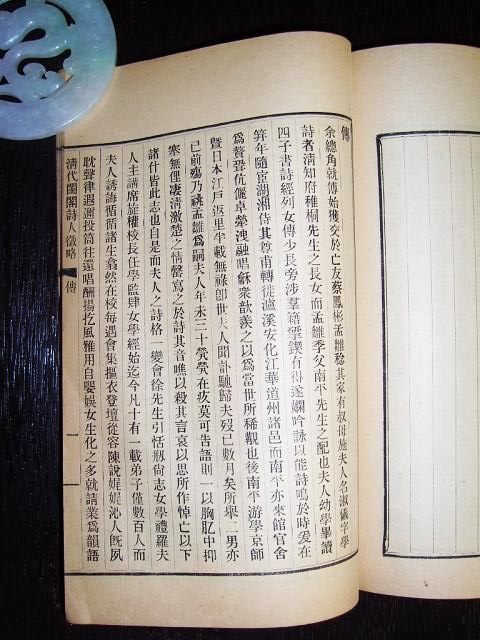 傳
余總角就傳始獲交於亡友蔡鳳彬孟雛稔其家有叔母施夫人名淑儀字學
詩者淸知府稚桐先生之長女而孟雛季父南平先生之配也夫人幼學畢讀
四子書詩經列女傳少長旁涉羣籍硏鍥有得遂嫻吟詠以能詩鳴於時爰在
筓年隨宦湖湘侍其尊甫轉徙瀘溪安化江華道州諸邑而南平亦來館官舍
爲贅壻伉儷卓犖洩融唱龢衆歆羨之以爲當世所稀覯也後南平游學京師
暨日本江戶返里半載無祿卽世夫人聞訃馳歸夫歿已數月矣所舉二男亦
已前殤乃祧孟雛爲嗣夫人年未三十煢煢在疚莫可告語則一以胸肊中抑
塞無俚淒淸激楚之情罄寫之於詩其音噍以殺其言哀以思所作悼亡以下
諸什皆此志也自是而夫人之詩格一變會徐先生引恬剏尙志女學禮羅夫
人主講席旋權校長任學監肆女學經始迄今凡十有一載弟子僅數百人而
夫人誘誨循循諸生翕然在校每遇會集摳衣登壇從容陳說娓娓沁人旣夙
耽聲律遐邇投筒往還唱酬揚扢風雅用自嬰娛女生化之多就請業爲韻語
淸代閨閣詩人徵略
傳
一